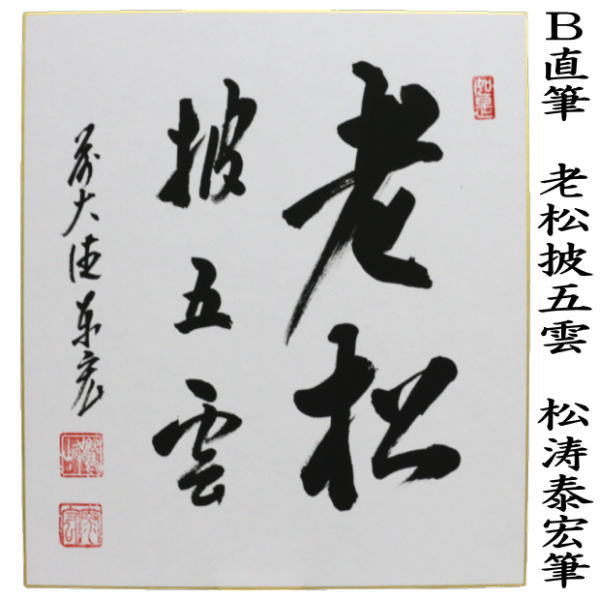 B直筆　老松披五雲　松涛泰宏筆
如是
老松
披五雲
前大徳泰宏